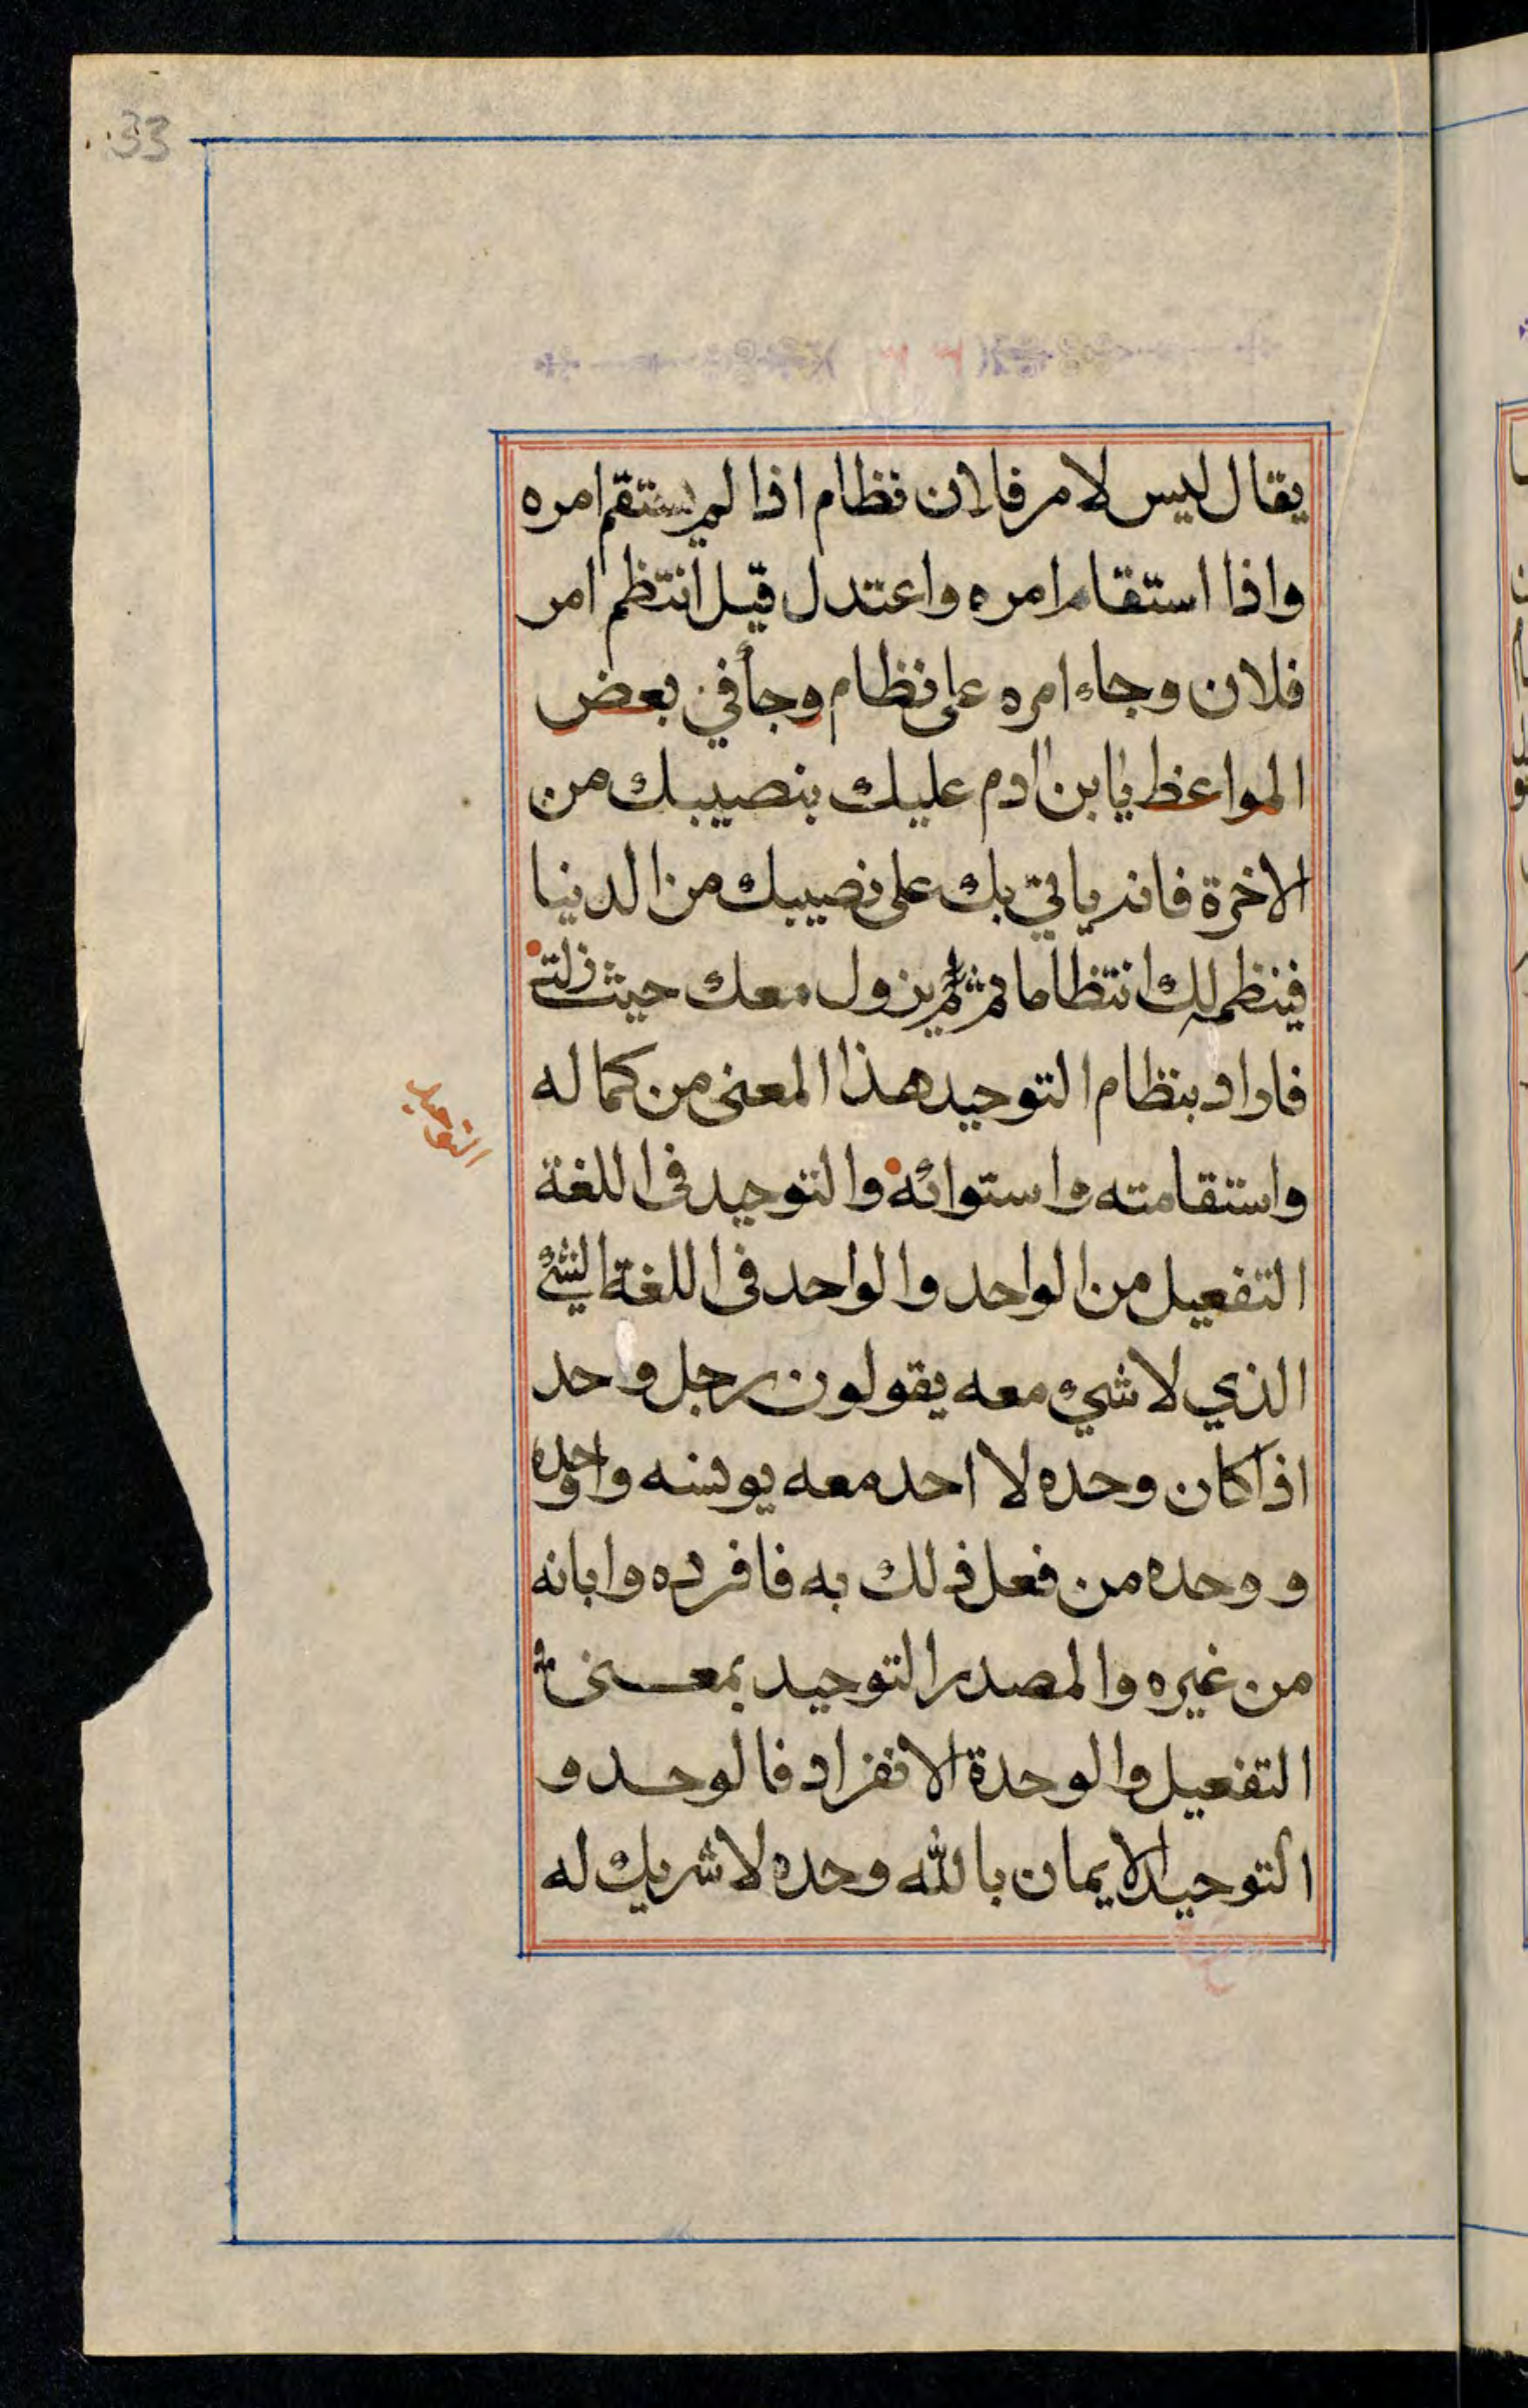 33
يقال ليس لامر فلان نظام اذا لم يستقم امره
واذا استقام امره واعتدل قيل انتظم امر
فلان وجاء امره على نظام وجأفي بعض
المواعظ يابن ادم عليك بنصيبك من
الاخرة فانه ياتي بك على نصيبك من الدنيا
فينظمه لك انتظاما ثم يزول معك حيث زلت
فاراد بنظام التوحيد هذا المعنى من كماله
واستقامته واستوائه والتوحيد في اللغة
التوحيد
التفعيل من الواحد والواحد في اللغة الشيء
الذي لا شيء معه يقولون رجل واحد
اذا كان وحده لا احد معه يونسه واوحده
ووحده من فعل ذلك به فافرده وابانه
من غيره والمصدر التوحيد بمعنى
التفعيل والوحدة الانفراد فالوحد و
التوحيد الايمان بالله وحده لا شريك له